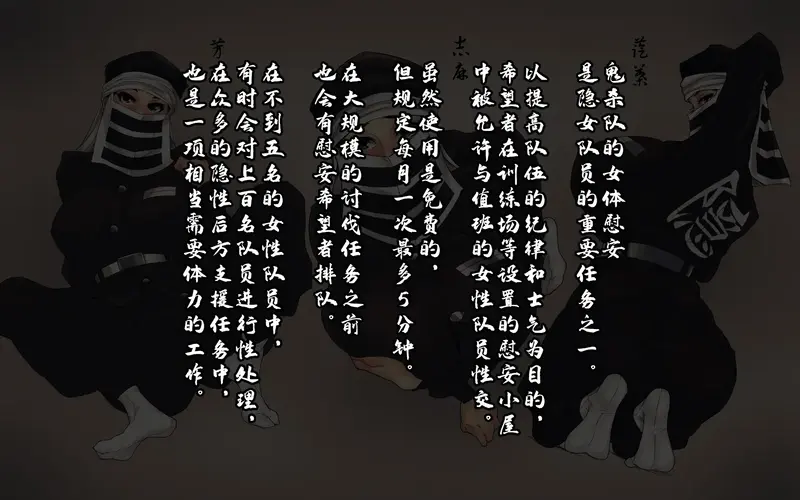 鬼杀队的女体慰安
是隐女队员的重要任务之一。
以提高队伍的纪律和士气为目的，
希望者在训练场等设置的慰安小屋
中被允许与值班的女性队员性交。
虽然使用是免费的，
但规定每月一次最多5分钟。
在大规模的讨伐任务之前
也会有慰安希望者排队。
在不到五名的女性队员中，
有时会对上百名队员进行性处理，
在众多的隐性后方支援任务中，
也是一项相当需要体力的工作。